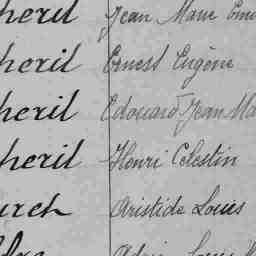 heril Jean Marie
heril Ernest Eugène
heril Edouard Jean Ma
heril Henri Celestin
urch Aristide Louis
Louis